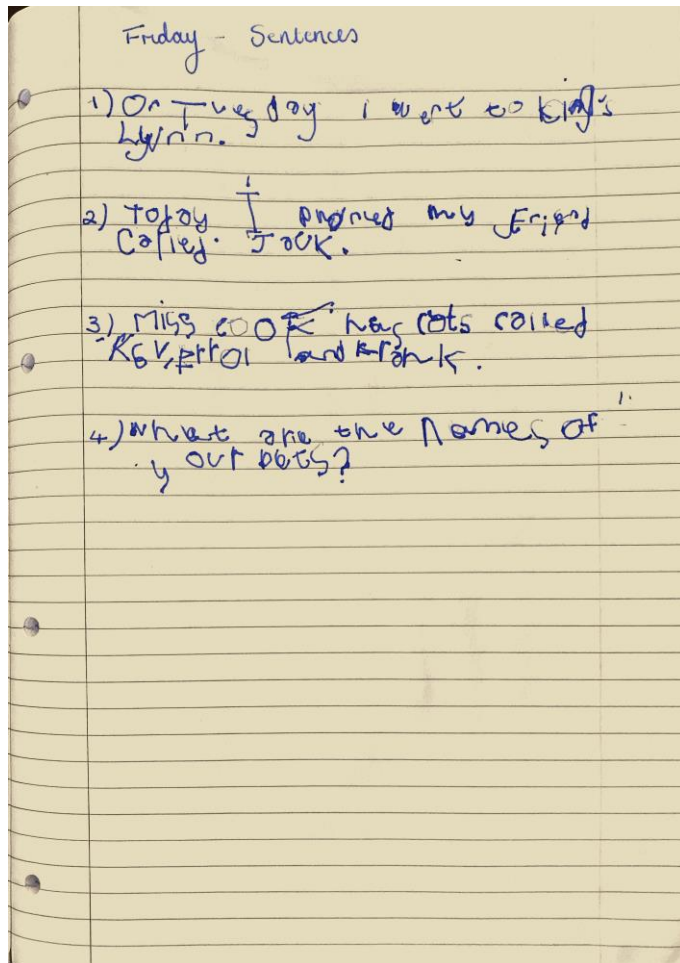 Friday - Sentences
1) On Tuesday i went to king's
Lynn.
2) Today I phoned my Friend
Called. Jack.
3) Miss cook has cats called
Kev, Errol and Frank.
4) What are the Names of
your pets?